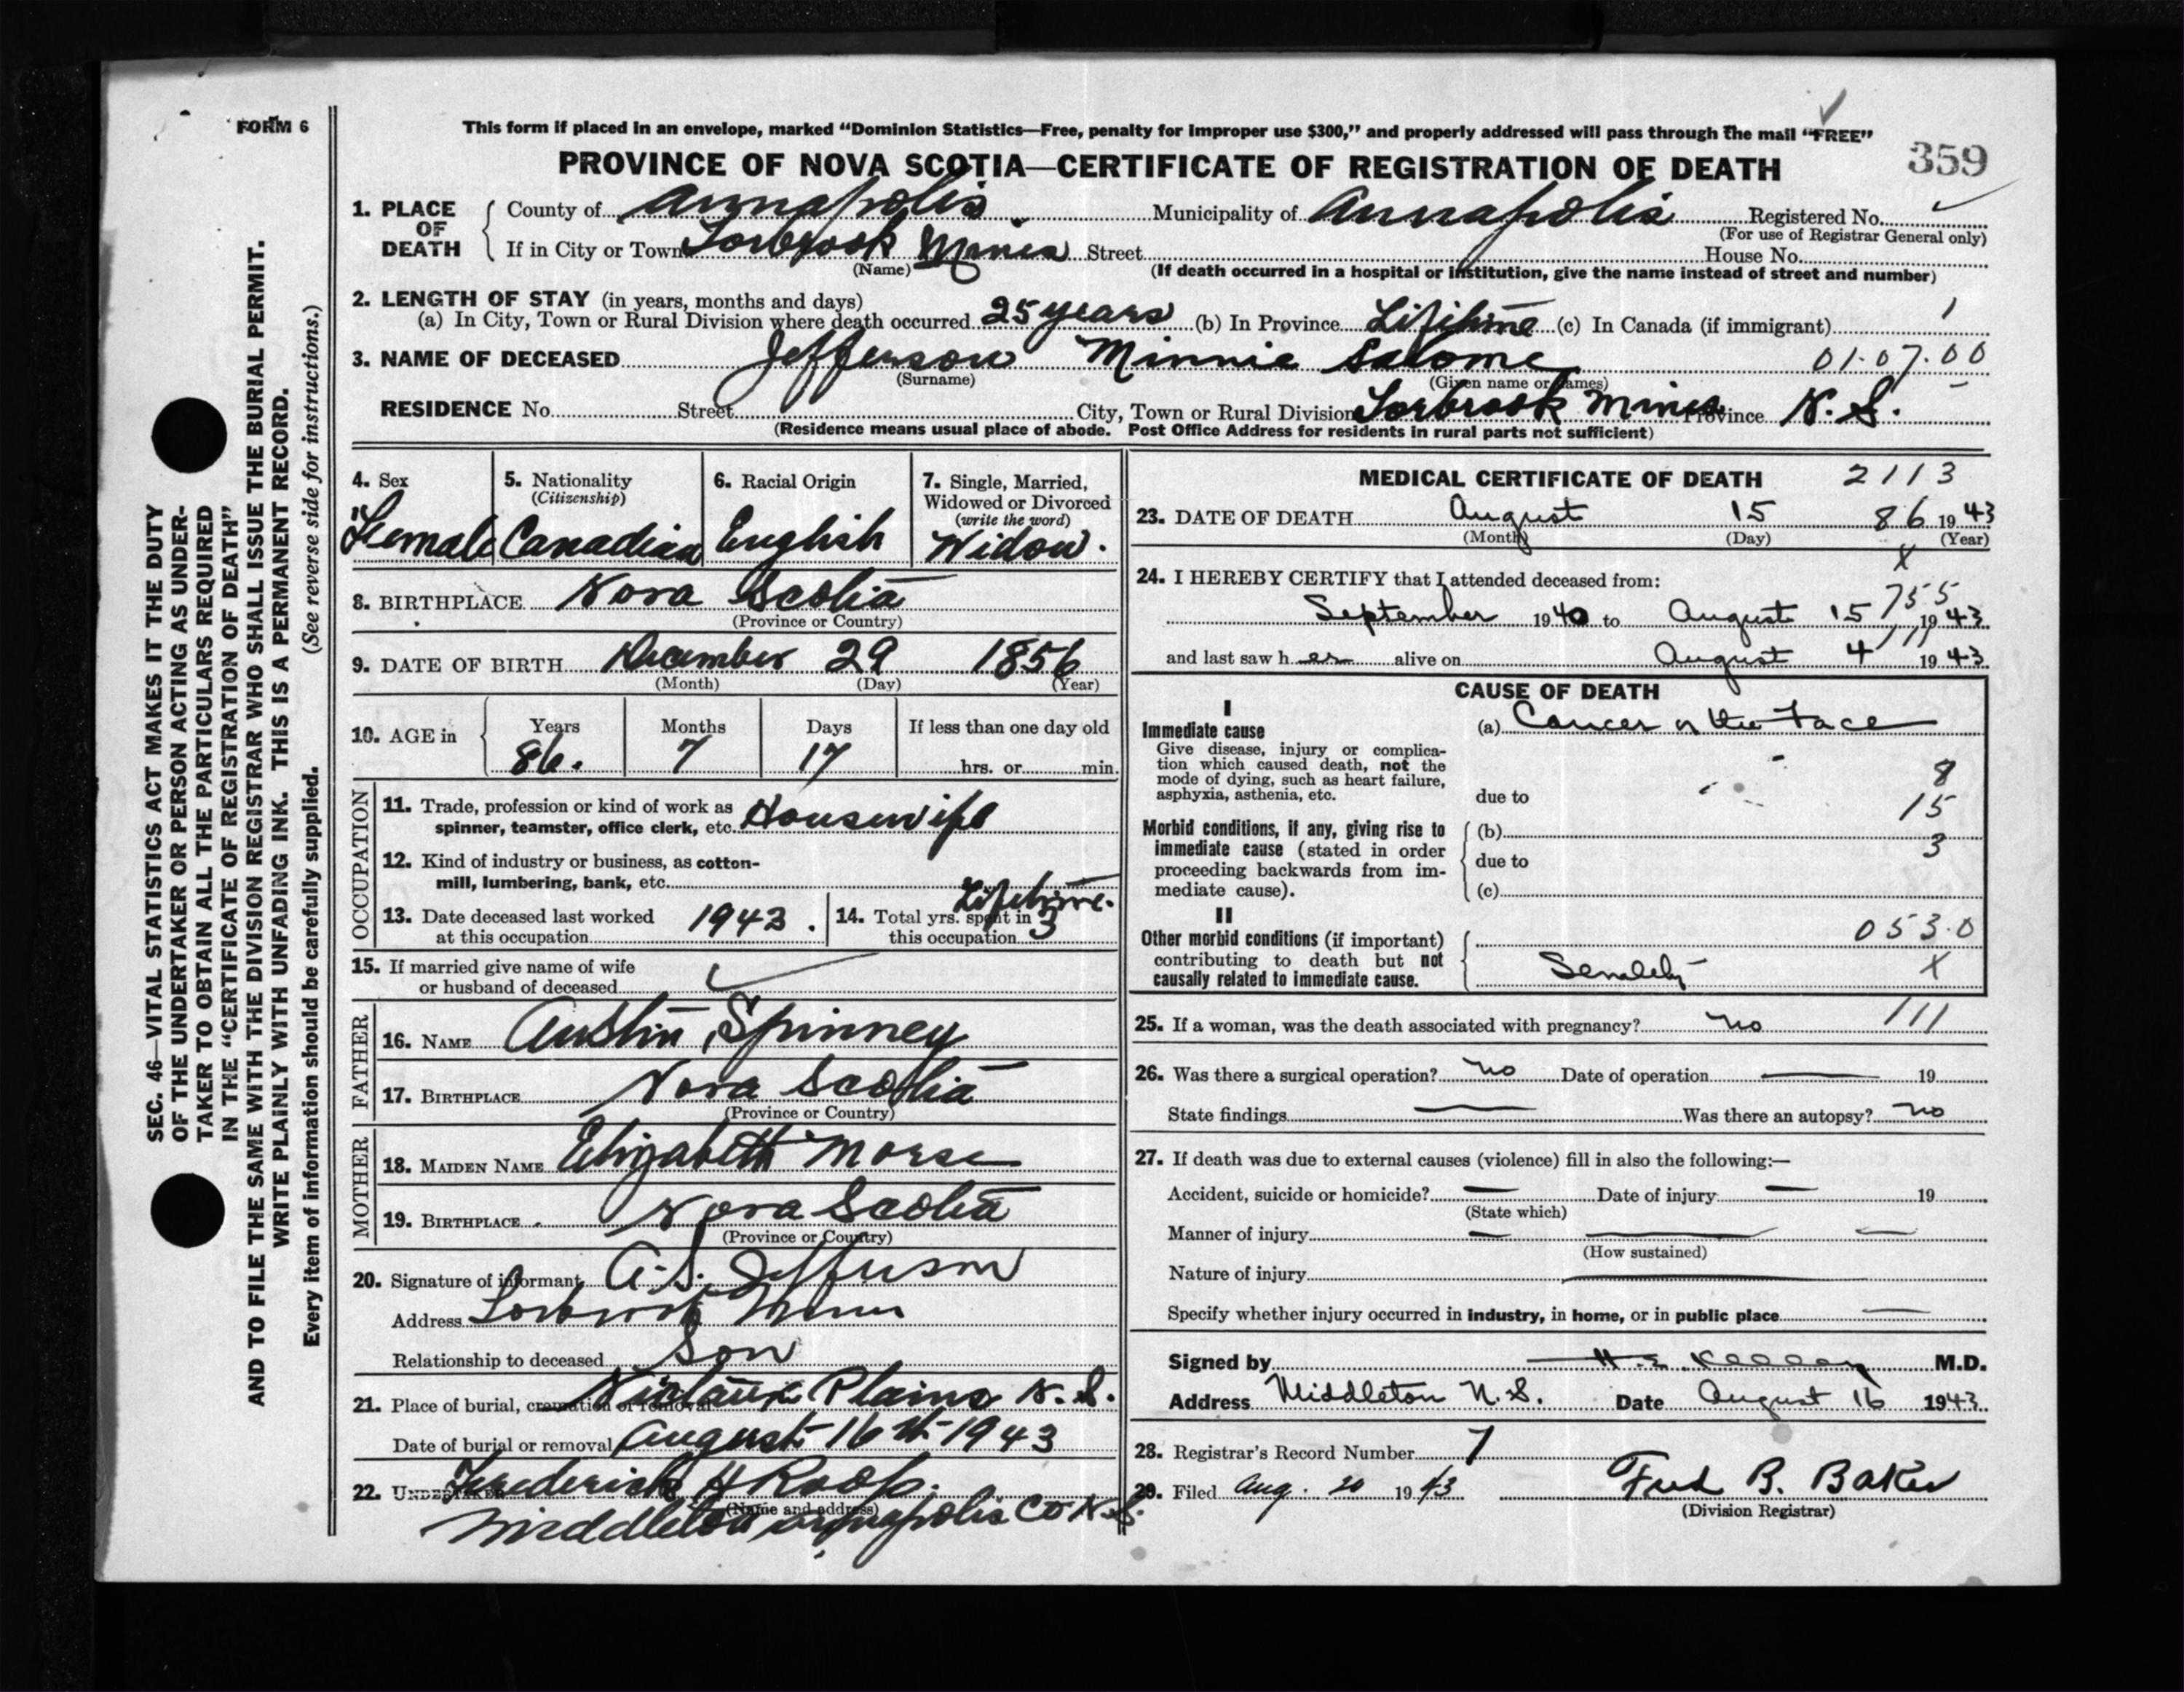 FORM 6
This form if placed in an envelope, marked “Dominion Statistics—Free, penalty for improper use $300,” and properly addressed will pass through the mail “FREE”
PROVINCE OF NOVA SCOTIA—CERTIFICATE OF REGISTRATION OF DEATH 359
1. PLACE OF DEATH
County of Annapolis Municipality of Annapolis Registered No.
(For use of Registrar General only)
If in City or Town Torbrook Mines Street House No.
(Name) (If death occurred in a hospital or institution, give the name instead of street and number)
2. LENGTH OF STAY (in years, months and days)
(a) In City, Town or Rural Division where death occurred 25 years (b) In Province Lifetime (c) In Canada (if immigrant) 1
3. NAME OF DECEASED Jefferson Minnie Salome 01.07.00
(Surname) (Given name or names)
RESIDENCE No. Street City, Town or Rural Division Torbrook Mines Province N. S.
(Residence means usual place of abode. Post Office Address for residents in rural parts not sufficient)
4. Sex
Female
5. Nationality
(Citizenship)
Canadian
6. Racial Origin
English
7. Single, Married,
Widowed or Divorced
(write the word)
Widow.
8. BIRTHPLACE Nova Scotia
(Province or Country)
9. DATE OF BIRTH December 29 1856
(Month) (Day) (Year)
10. AGE in
Years Months Days If less than one day old
86. 7 17 hrs. or min.
OCCUPATION
11. Trade, profession or kind of work as
spinner, teamster, office clerk, etc. Housewife
12. Kind of industry or business, as cotton-
mill, lumbering, bank, etc.
13. Date deceased last worked
at this occupation 1943.
14. Total yrs. spent in
this occupation Lifetime. 3
15. If married give name of wife
or husband of deceased
FATHER
16. NAME Austin Spinney
17. BIRTHPLACE Nova Scotia
(Province or Country)
MOTHER
18. MAIDEN NAME Elizabeth Morse
19. BIRTHPLACE Nova Scotia
(Province or Country)
20. Signature of informant A. S. Jefferson
Address Torbrook Mines
Relationship to deceased Son
21. Place of burial, cremation or removal Nictaux Plains N. S.
Date of burial or removal August 16th 1943
22. UNDERTAKER Frederick H Roop.
(Name and address)
Middleton Annapolis Co N. S.
MEDICAL CERTIFICATE OF DEATH 2113
23. DATE OF DEATH August 15 86 1943
(Month) (Day) (Year)
X
24. I HEREBY CERTIFY that I attended deceased from:
755
September 1940 to August 15 1943
and last saw her alive on August 4 1943
CAUSE OF DEATH
I
Immediate cause
Give disease, injury or complica-
tion which caused death, not the
mode of dying, such as heart failure,
asphyxia, asthenia, etc.
(a) Cancer of the Face
8
due to
15
Morbid conditions, if any, giving rise to
immediate cause (stated in order
proceeding backwards from im-
mediate cause).
(b)
3
due to
(c)
II
Other morbid conditions (if important)
contributing to death but not
causally related to immediate cause.
053.0
Senility X
25. If a woman, was the death associated with pregnancy? no 111
26. Was there a surgical operation? no Date of operation 19
State findings Was there an autopsy? no
27. If death was due to external causes (violence) fill in also the following:—
Accident, suicide or homicide? Date of injury 19
(State which)
Manner of injury
(How sustained)
Nature of injury
Specify whether injury occurred in industry, in home, or in public place
Signed by M.D.
Address Middleton N. S. Date August 16 1943
28. Registrar's Record Number 7
29. Filed Aug. 20 1943 Fred B. Baker
(Division Registrar)
SEC. 46—VITAL STATISTICS ACT MAKES IT THE DUTY
OF THE UNDERTAKER OR PERSON ACTING AS UNDER-
TAKER TO OBTAIN ALL THE PARTICULARS REQUIRED
IN THE “CERTIFICATE OF REGISTRATION OF DEATH”
AND TO FILE THE SAME WITH THE DIVISION REGISTRAR WHO SHALL ISSUE THE BURIAL PERMIT.
WRITE PLAINLY WITH UNFADING INK. THIS IS A PERMANENT RECORD.
Every item of information should be carefully supplied. (See reverse side for instructions.)